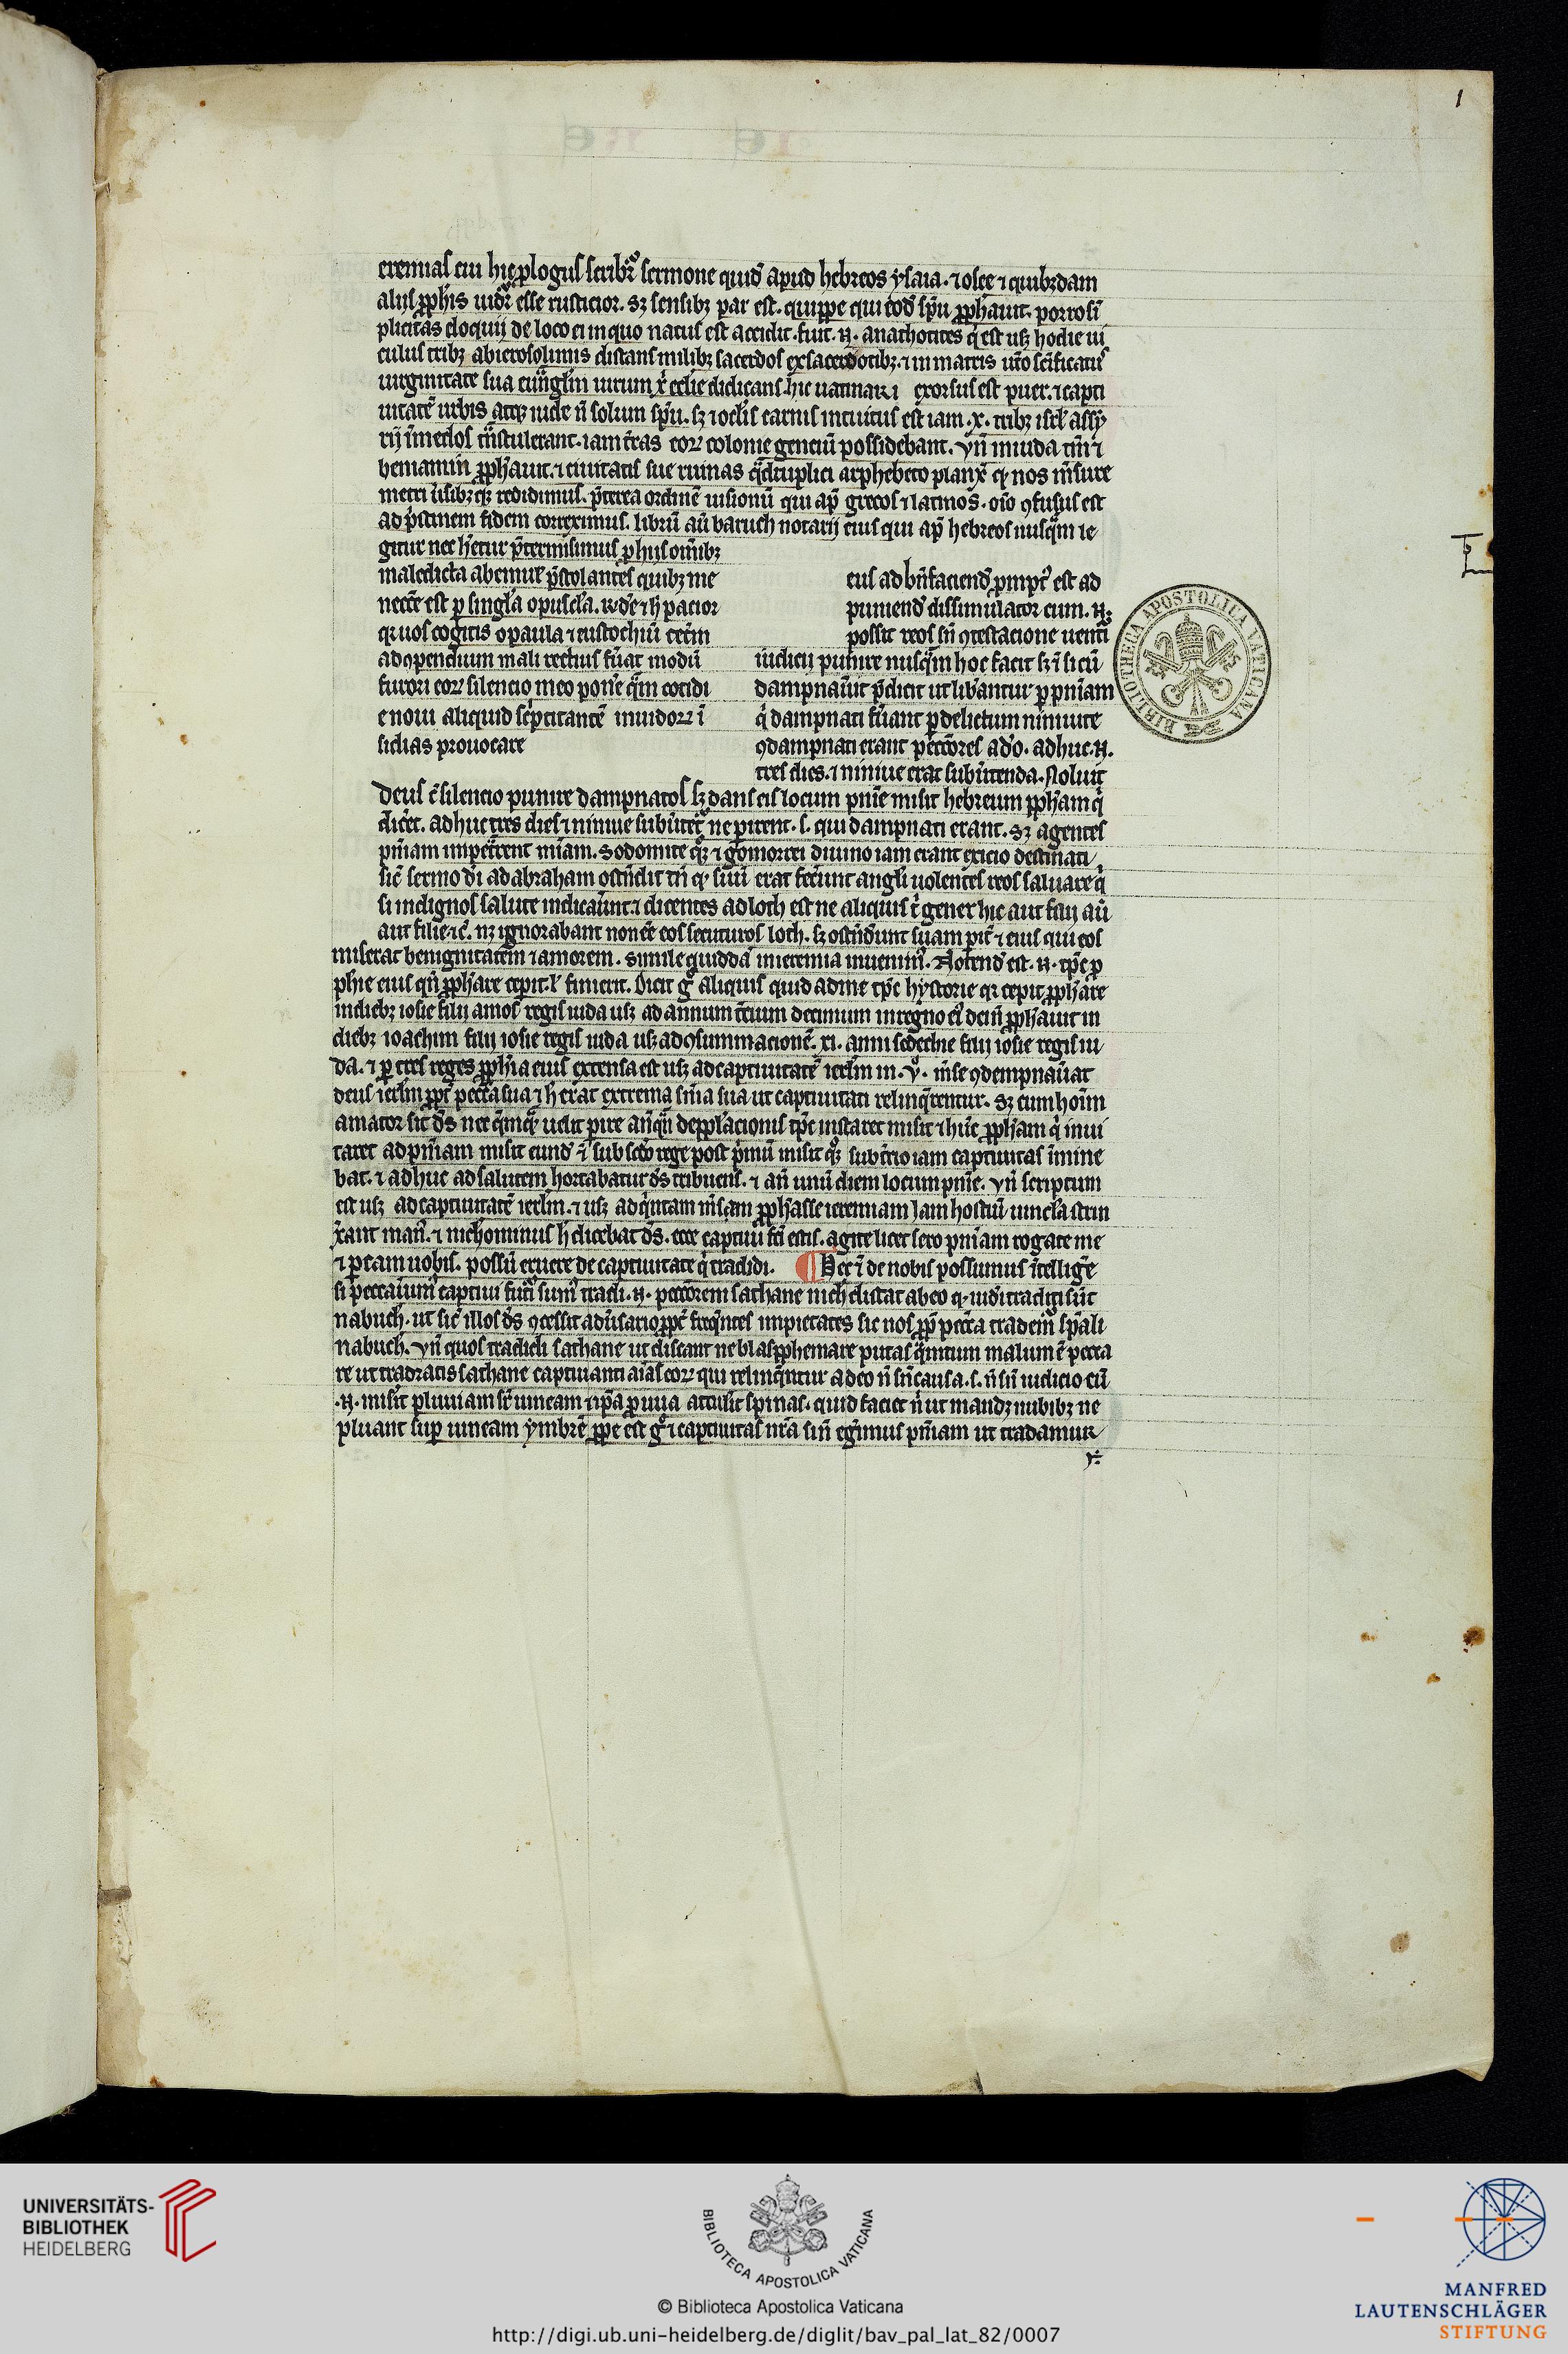 1
eremias cui hic prologus scribitᷣ sermone quidē apud hebreos ysaia. ⁊ osee ⁊ quibꝫdam
alijs ꝓphis uidᷣ esse rusticior. sꝫ sensibꝫ par est. quippe qui eod̄ sp̄u ꝓphauit. porro sī
plicitas eloquij de loco ei in quo natus est accidit. fuit. n̄. anathotites q̇ est usꝫ hodie ui
culus tribꝫ ab ierosolimis distans milibꝫ sacerdos ex sacerdotibꝫ. ⁊ in matris utō sc̄ificatꝰ
uirginitate sua euᷓnglm uirum xp̄i ecclie dedicans. hic uaticinari exorsus est puer. ⁊ capti
uitatē urbis atqꝫ iude n̄ solum sp̄u. sꝫ ⁊ oclis carnis intuitus est iam .x. tribꝫ isrl̄ assy
rij ī medos tᷓnstulerant. iam t̄ras eoꝝ colonie genciū possidebant. vn̄ in iuda tm̄ ⁊
beniamin ꝓphauit. ⁊ ciuitatis sue ruinas qᷓdruplici alphebeto planxᷓ qꝫ nos m̄sure
metri uˀsibꝫqꝫ redidimus. p̄terea ordinē uisionū qui ap̄ grecos ⁊ latinos. oīo ꝯfusus est
ad p̄stinem fidem correximus. librū aū baruch notarij eius qui ap̄ hebreos nusqᷓm le
gitur nec h̄etur p̄termisimus ꝓ hijs om̄ibꝫ
maledicta ab emulˀ p̄stolantes quibꝫ me
necc̄e est ꝑ singl̄a opuscl̄a. r̄nde ⁊ h̄ pacior
qꝛ uos cogitis o paula ⁊ eustochiū cet̄m
ad ꝯpendium mali rectius fūat modū
furori eoꝝ silencio meo pon̄e qᷓm cotidi
e noui aliquid sc̄ptitantē inuidoꝝ ī
sidias prouocare
eius ad bn̄faciend̄ prompt̄ est ad
puniend̄ dissimulator cum. n̄.
possit reos sn̄ ꝯtestacione uenti
iudicij punire nusqᷓm hoc facit sꝫ ⁊ si cū
dampnaūit p̄dicit ut lib̄antur ꝑ pn̄iam
q̇ dampnati fūant ꝑ delictum niniuite
ꝯdampnati erant pecc̄ores a dō. adhuc. n̄.
tres dies. ⁊ niniue erat subūtenda. Noluit
deus c̄ silencio punire dampnatos sꝫ dans eis locum pn̄ie misit hebreum ꝓpham q̇
dic̄et. adhuc tres dies ⁊ niniue subūtet̄ᷣ ne pirent. s. qui dampnati erant. sꝫ agentes
pn̄iam impet̄rent mīam. Sodomite qꝫ ⁊ gomorrei diuino iam erant exicio destinati
sic̄ sermo dī ad abraham ostn̄dit tn̄ qꝫ suū erat fec̄unt angl̄i uolentes reos saluare q̇
si indignos salute indicaūnt. ⁊ dicentes ad loth est ne aliquis t̄ gener hic aut filij aū
aut filie ⁊c̄. nꝫ ignorabant non c̄e eos secuturos loth. sꝫ ostn̄dunt suam piet̄ ⁊ eius qui eos
miserat benignitatem ⁊ amorem. Simile quidda in ieremia inuenim̄ꝰ. Notend̄ est. n̄. tp̄c ꝓ
phie eius qn̄ ꝓphare cepit. lˀ finierit. Dicit gᷓ aliquis quid ad me tp̄c hystorie qꝛ cepit ꝓphare
in diebꝫ iosie filij amos regis iuda usꝫ ad annum tc̄ium decimum in regno eiꝰ dein̄ ꝓphauit in
diebꝫ ioachim filij iosie regis iuda usꝫ ad ꝯsummacionē. xi. anni sedechie filij iosie regis iu
da. ⁊ ꝑ tres reges ꝓphia eius extensa est usꝫ ad captiuitatē ierlm̄ in .vᷣ. m̄se ꝯdempnaūat
deus ierlm̄ ꝓpt̄ pecc̄ta sua ⁊ h̄ erat extrema sn̄ia sua ut captiuitati relinqᷣrentur. Sꝫ cum hoīm
amator sit d̄s nec qᷓmqᷓ uelit pire an̄qn̄ depp̄lacionis tp̄c instaret misit ⁊ hūc ꝓpham q̇ inui
taret ad pn̄iam misit eund̄ ⁊ sub sc̄do rege post p̄mū misit qꝫ sub tc̄io iam captiuitas īmine
bat. ⁊ adhuc ad salutem hortabatur d̄s tribuens. ⁊ an̄ unū diem locum pn̄ie. vn̄ scriptum
est usꝫ ad captiuitatē ierlm̄. ⁊ usꝫ ad q̇ntam m̄sem ꝓphasse ieremiam jam hostiū uincl̄a strin
xᷓant man̄ꝰ. ⁊ nichominus h̄ dicebat d̄s. ecce captiui fc̄i estis. agite licet sero pn̄iam rogate me
⁊ ꝑcam uobis. possū eruere de captiuitate q̇ tradidi. ¶ hec ⁊ de nobis possumus ītellige̅
si peccauim̄ꝰ captiui futi sum̄ꝰ tradi. n̄. pecc̄orem sathane nich̄ distat ab eo qꝫ iudi traditi sūt
nabuch. ut sic̄ illos d̄s ꝯcessit adūsario ꝓpt̄ freqᷣntes impietates sic nos ꝓp̄ pecc̄a tradem̄ꝰ sp̄ali
nabuch. vn̄ quos tradidi sathane ut discant ne blasphemare putas qᷓntum malum ē pecca
re ut tradatis sathane captiuanti aīas eoꝝ qui relinqᷣntur a deo n̄ sn̄ causa. s. n̄ sn̄ iudicio cū
.n̄. misit pluuiam sr̄ uineam ⁊ ip̄a ꝓ uua attulit spinas. quid faciet n̄ ut mandꝫ nubibꝫ ne
pluant suꝑ uineam ymbrē ꝓpe est gᷓ ⁊ captiuitas nr̄a si n̄ egimus pn̄iam ut tradamur
BIBLIOTHECA APOSTOLICA VATICANA
UNIVERSITÄTS-
BIBLIOTHEK
HEIDELBERG
BIBLIOTECA APOSTOLICA VATICANA
© Biblioteca Apostolica Vaticana
http://digi.ub.uni-heidelberg.de/diglit/bav_pal_lat_82/0007
MANFRED
LAUTENSCHLÄGER
STIFTUNG